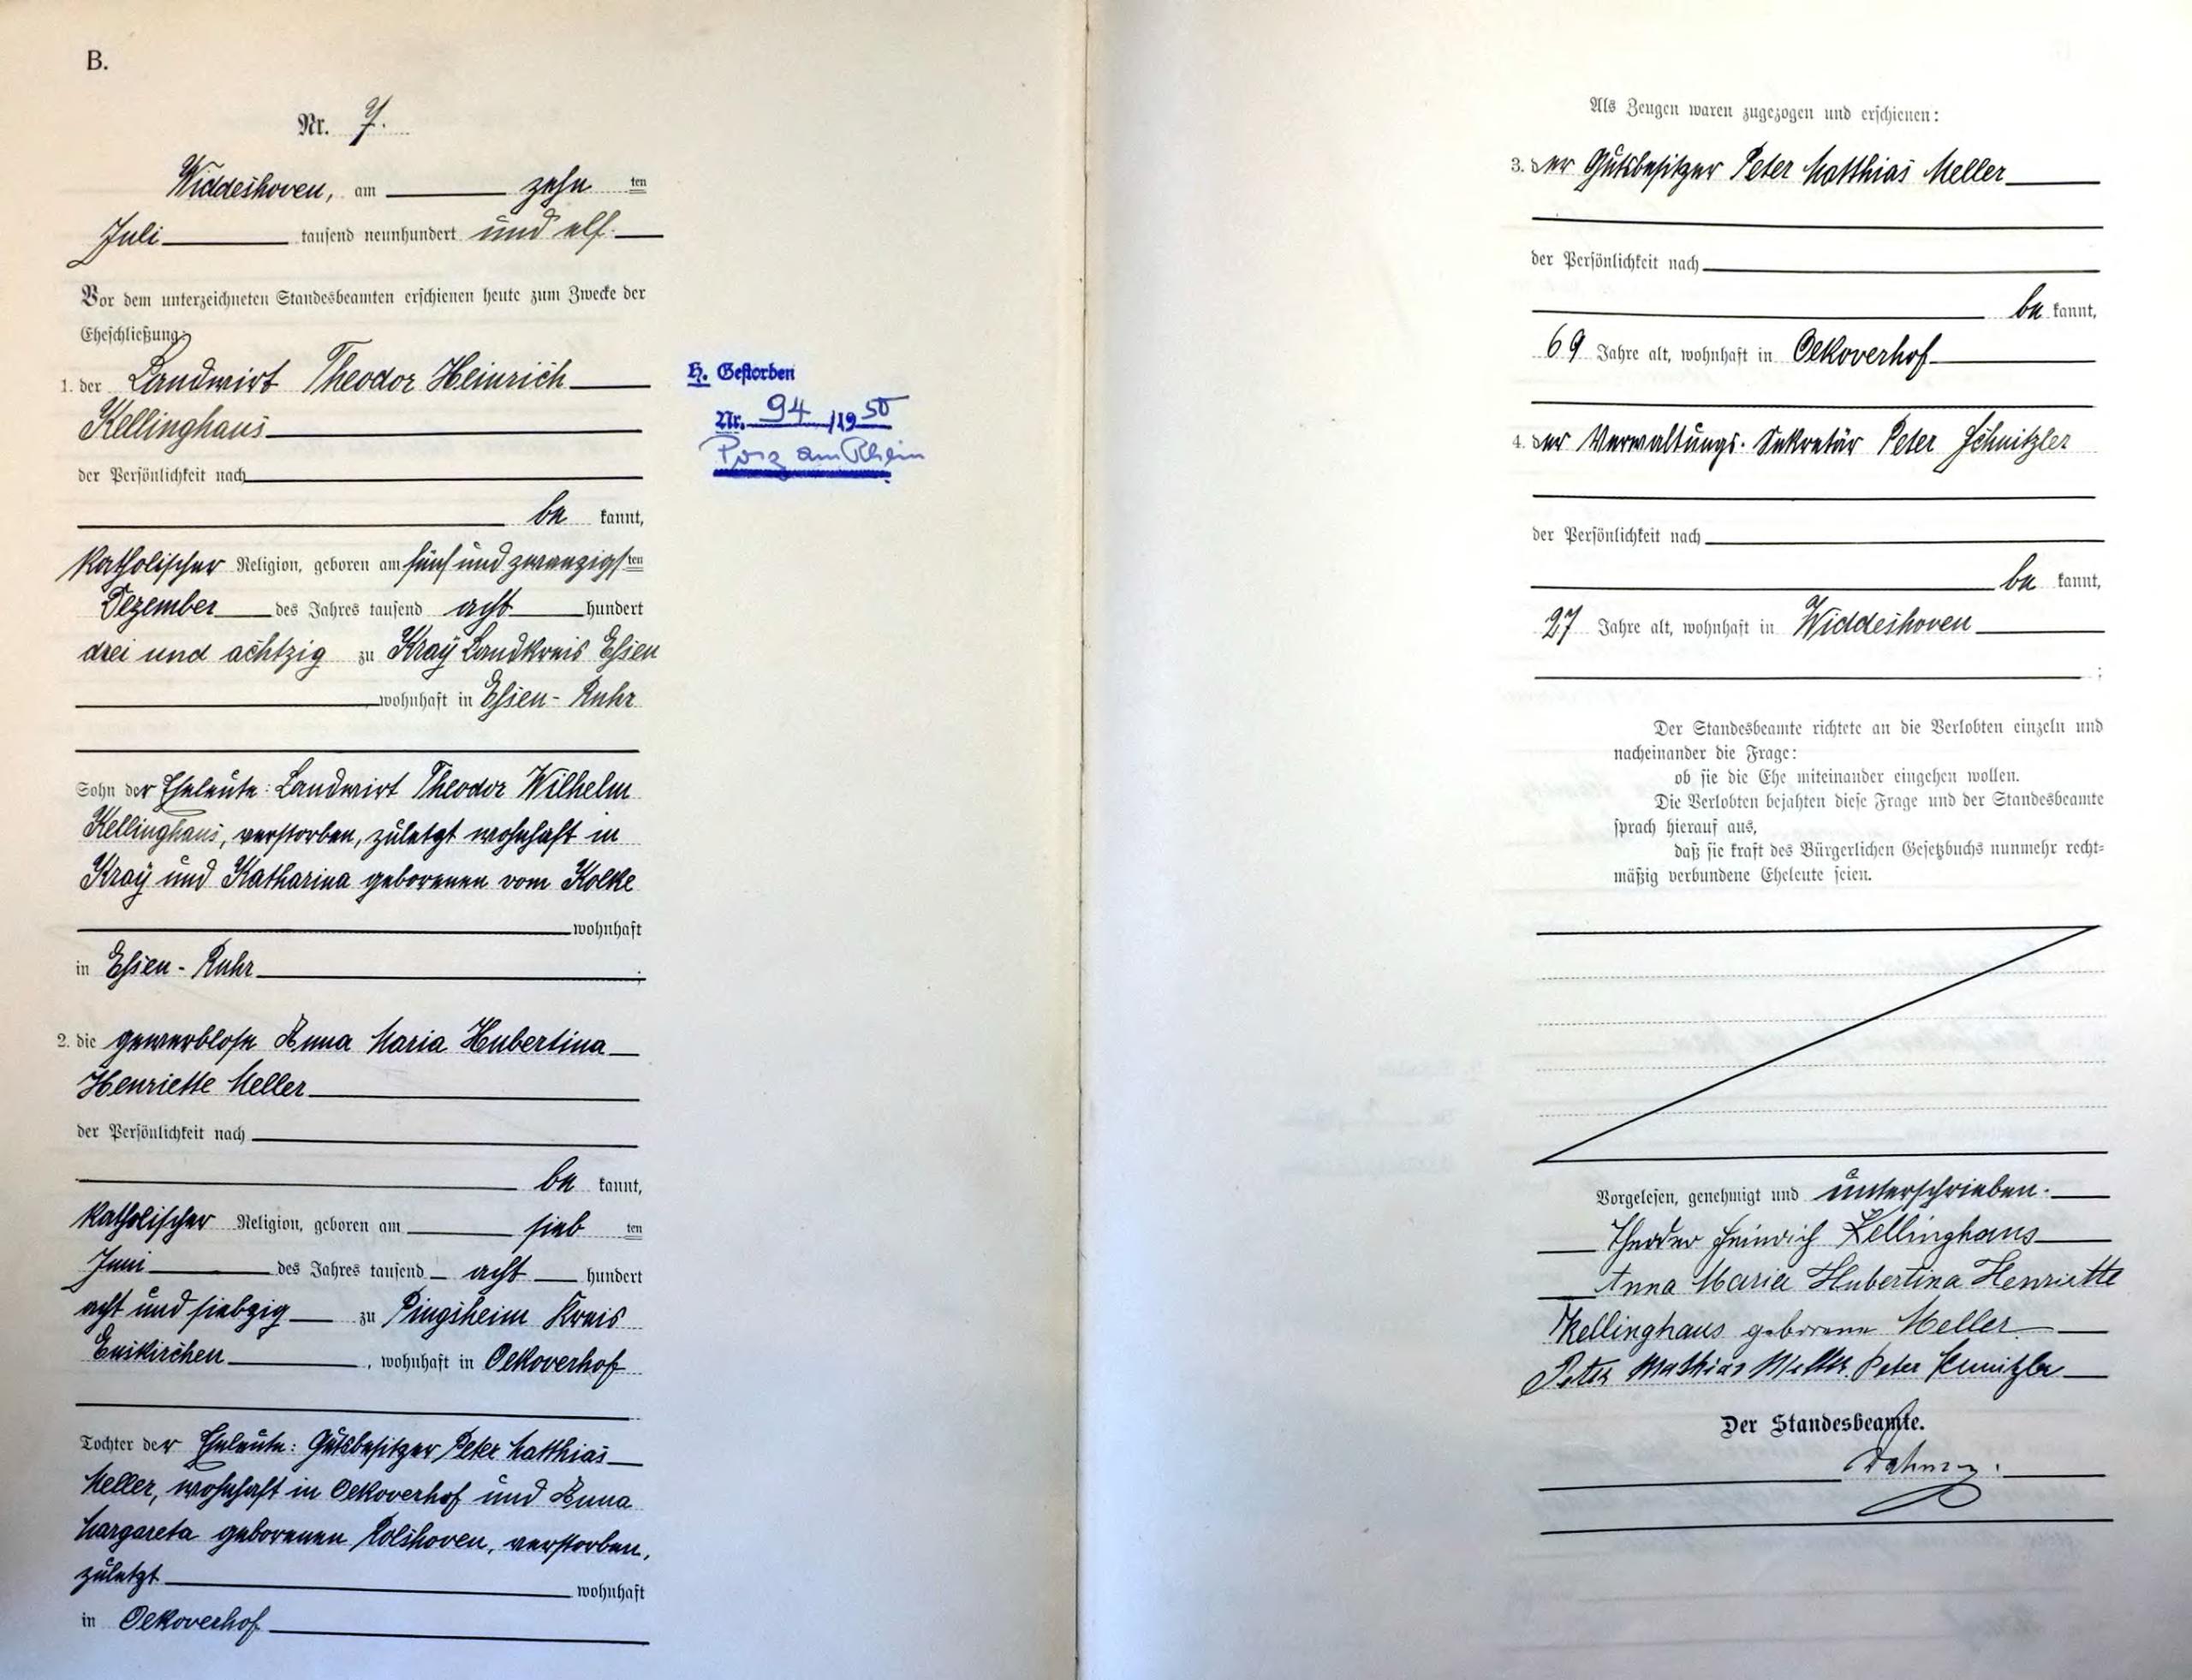 B.
Nr. 7.
Widdeshoven, am zehn ten
Juli tausend neunhundert und elf.
Vor dem unterzeichneten Standesbeamten erschienen heute zum Zwecke der
Eheschließung:
1. der Landwirt Theodor Heinrich
Kellinghaus
der Persönlichkeit nach
be kannt,
katholischer Religion, geboren am fünf und zwanzigsten
Dezember des Jahres tausend acht hundert
drei und achtzig zu Kray Landkreis Essen
wohnhaft in Essen-Ruhr
Sohn der Eheleute: Landwirt Theodor Wilhelm
Kellinghaus, verstorben, zuletzt wohnhaft in
Kray und Katharina geborenen vom Kolke
wohnhaft
in Essen-Ruhr
2. die gewerblose Anna Maria Hubertina
Henriette Meller
der Persönlichkeit nach
be kannt,
katholischer Religion, geboren am sieb ten
Juni des Jahres tausend acht hundert
acht und siebzig zu Pingsheim Kreis
Euskirchen, wohnhaft in Oekoverhof
Tochter der Eheleute: Gutsbesitzer Peter Matthias
Meller, wohnhaft in Oekoverhof und Anna
Margareta geborenen Rolshoven, verstorben,
zuletzt wohnhaft
in Oekoverhof
H. Gestorben
Nr. 94/1950
Porz am Rhein
Als Zeugen waren zugezogen und erschienen:
3. der Gutsbesitzer Peter Matthias Meller
der Persönlichkeit nach
be kannt,
69 Jahre alt, wohnhaft in Oekoverhof
4. der Verwaltungs-Sekretär Peter Schnitzler
der Persönlichkeit nach
be kannt,
27 Jahre alt, wohnhaft in Widdeshoven
;
Der Standesbeamte richtete an die Verlobten einzeln und
nacheinander die Frage:
ob sie die Ehe miteinander eingehen wollen.
Die Verlobten bejahten diese Frage und der Standesbeamte
sprach hierauf aus,
daß sie kraft des Bürgerlichen Gesetzbuchs nunmehr recht=
mäßig verbundene Eheleute seien.
Vorgelesen, genehmigt und unterschrieben.
Theodor Heinrich Kellinghaus
Anna Maria Hubertina Henriette
Kellinghaus geborene Meller
Peter Mathias Meller. Peter Schnitzler
Der Standesbeamte.